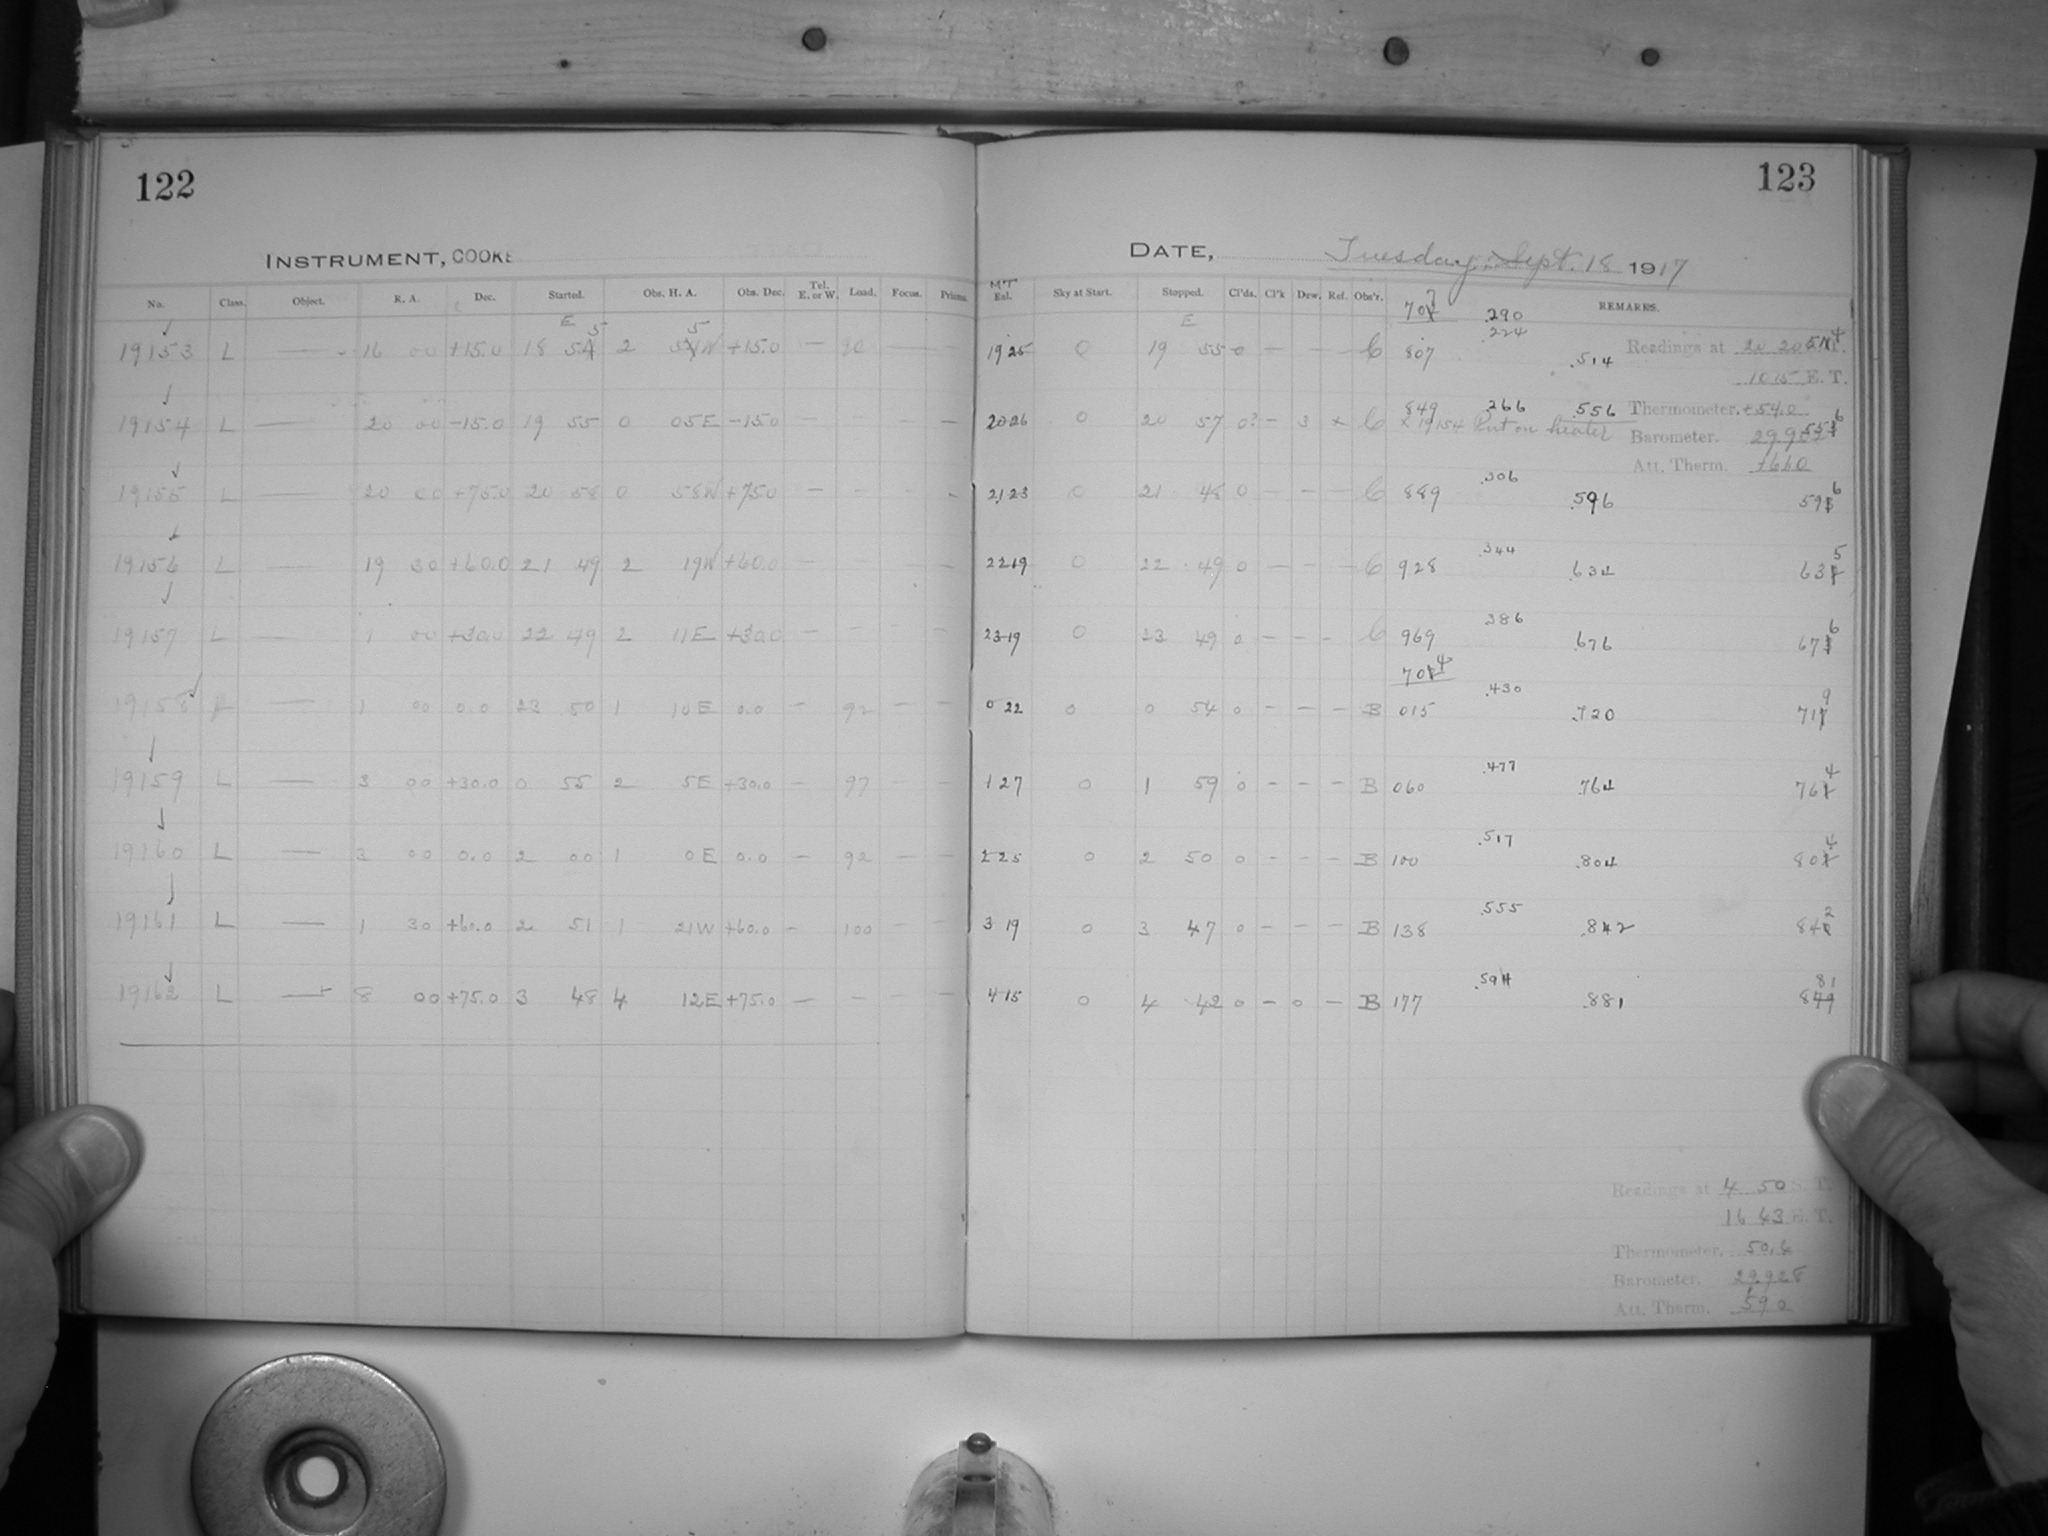 122
INSTRUMENT, COOKE
No. Class. Object. R. A. Dec. Started. Obs. H. A. Obs. Dec. Tel. E. or W. Load. Focus. Prisms.
E
19153 L — 16 00 +15.0 18 55 2 55W +15.0 — 90 — —
19154 L — 20 00 -15.0 19 55 0 05E -15.0 — — —
19155 L — 20 00 +75.0 20 58 0 58W +75.0 — — — —
19156 L — 19 30 +60.0 21 49 2 19W +60.0 — — — —
19157 L — 1 00 +30.0 22 49 2 11E +30.0 — — — —
19158 L — 1 00 0.0 23 50 1 10E 0.0 — 92 — —
19159 L — 3 00 +30.0 0 55 2 5E +30.0 — 97 — —
19160 L — 3 00 0.0 2 00 1 0E 0.0 — 92 — —
19161 L — 1 30 +60.0 2 51 1 21W +60.0 — 100 — —
19162 L — 8 00 +75.0 3 48 4 12E +75.0 — — — —
123
DATE, Tuesday, Sept. 18 1917
MT
Exl. Sky at Start. Stopped. Cl'ds. Cl'k Dew. Ref. Obs'r. REMARKS.
E 707 .290
.224
19 25 0 19 55 0 — — — C 807 .514 Readings at 20 20 S.T. 514
10 15 E. T.
20 26 0 20 57 0? — 3 x C 849 .266 .556 Thermometer. +54.0
x 19154 Put on heater Barometer. 556
Att. Therm. +66.0
21 23 0 21 48 0 — — — C 889 .306 .596 596
22 19 0 22 49 0 — — — C 928 .344 .634 635
23 19 0 23 49 0 — — — C 969 .386 .676 676
704
0 22 0 0 54 0 — — — B 015 .430 .720 719
1 27 0 1 59 0 — — — B 060 .477 .764 764
2 25 0 2 50 0 — — — B 100 .517 .804 804
3 19 0 3 47 0 — — — B 138 .555 .842 842
4 15 0 4 42 0 — 0 — B 177 .594 .881 881
Readings at 4 50 S. T.
16 43 E. T.
Thermometer. 50.6
Barometer. 29.928
Att. Therm. 59.0